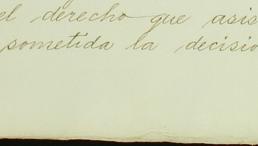 el derecho que asis
sometida la decisio